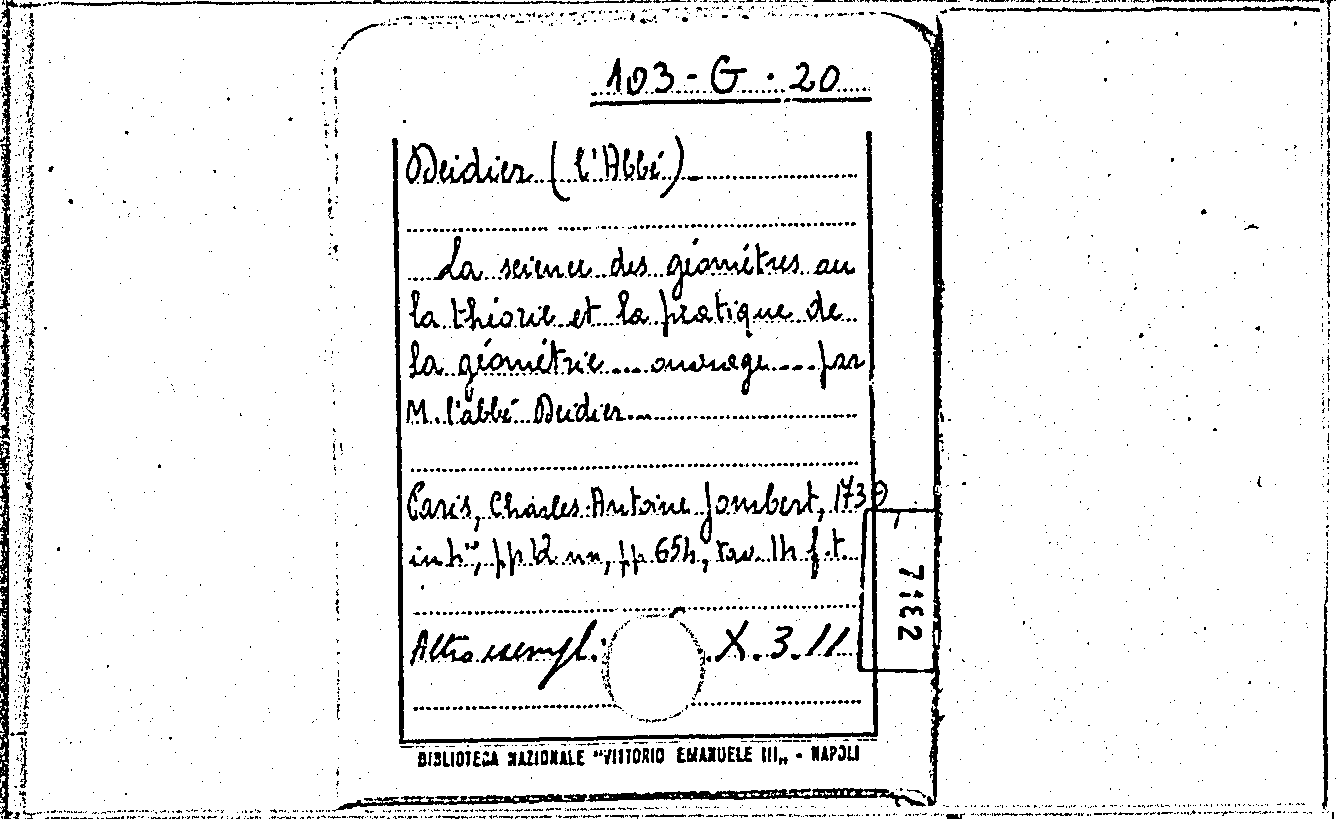 103 - G. 20
Deidier (l'Abbé)
La science des géométres ou
la théorie et la pratique de
la géométrie ... ouvrage ... par
M. l'abbé Deidier ...
Paris, Charles-Antoine Jombert, 1739
in 4°, pp 12 nn, pp 654, tav. 14 f.t.
Altro esempl.: X. 3. 11
7182
BIBLIOTECA NAZIONALE "VITTORIO EMANUELE III" - NAPOLI